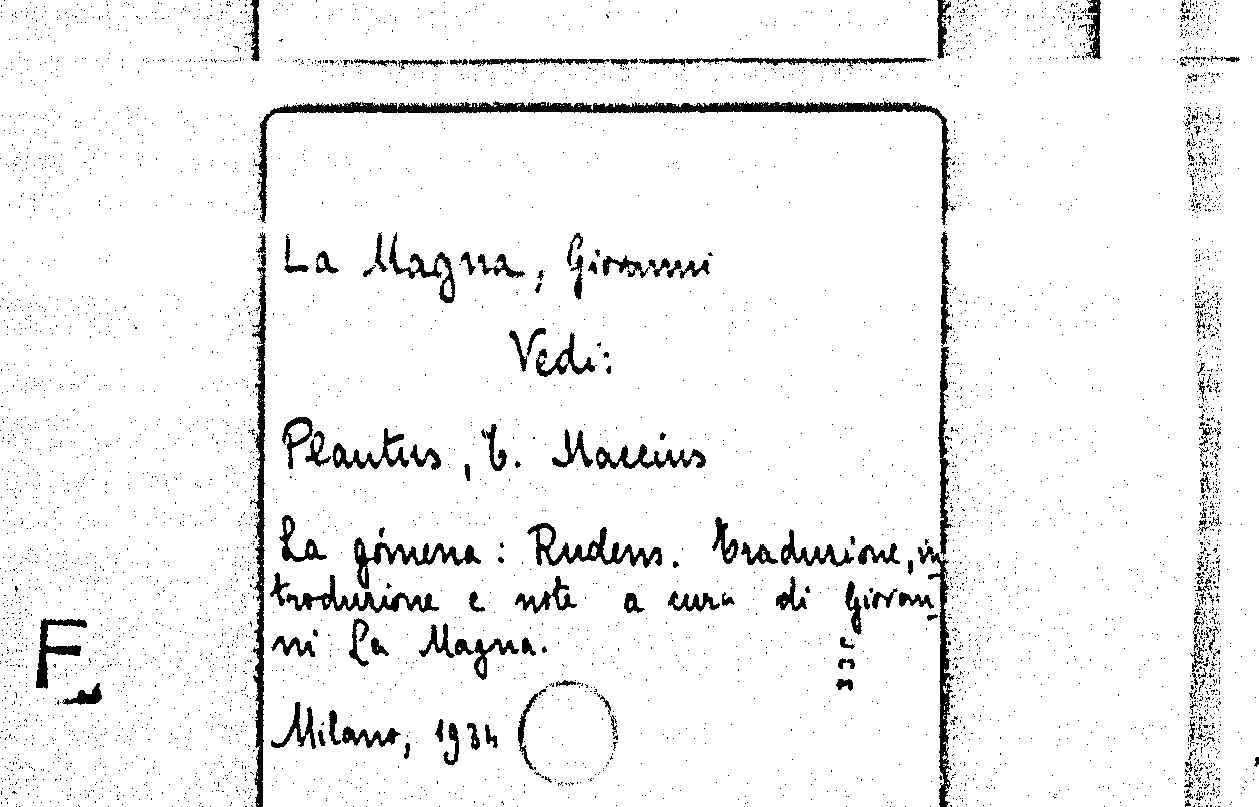 La Magna, Giovanni
Vedi:
Plautus, T. Maccius
La gómena: Rudens. Traduzione, in
troduzione e note a cura di Giovan
ni La Magna.
F
Milano, 1934